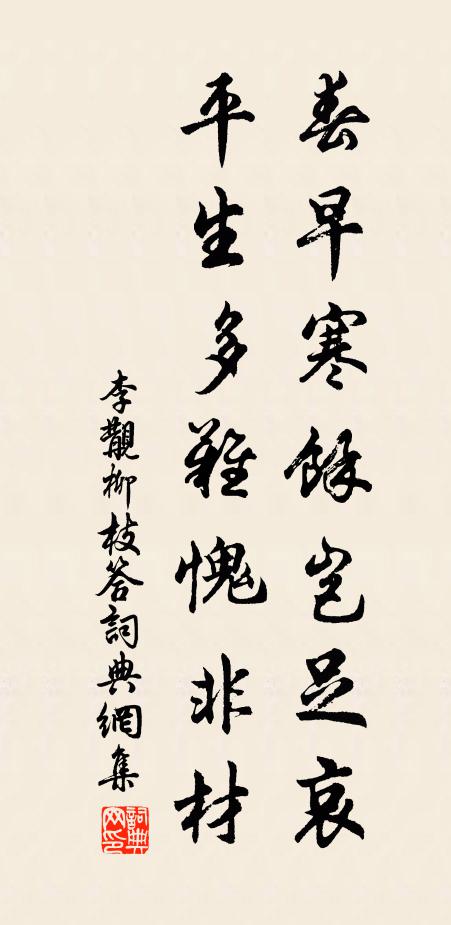 春早寒餘豈足哀
平生多難愧非材
李觀柳枝答詞典網集
詞典網印